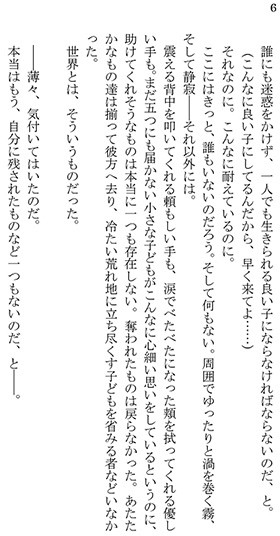 6
誰にも迷惑をかけず、一人でも生きられる良い子にならなければならないのだ、と。
（こんなに良い子にしてるんだから、早く来てよ……）
それなのに。こんなに耐えているのに。
ここにはきっと、誰もいないのだろう。そして何もない。周囲でゆったりと渦を巻く霧、
そして静寂――それ以外には。
震える背中を叩いてくれる頼もしい手も、涙でべたべたになった頬を拭ってくれる優し
い手も。まだ五つにも届かない小さな子どもがこんなに心細い思いをしているというのに、
助けてくれそうなものは本当に一つも存在しない。奪われたものは戻らなかった。あたた
かなもの達は揃って彼方へ去り、冷たい荒れ地に立ち尽くす子どもを省みる者などいなか
った。
世界とは、そういうものだった。
――薄々、気付いてはいたのだ。
本当はもう、自分に残されたものなど一つもないのだ、と――。